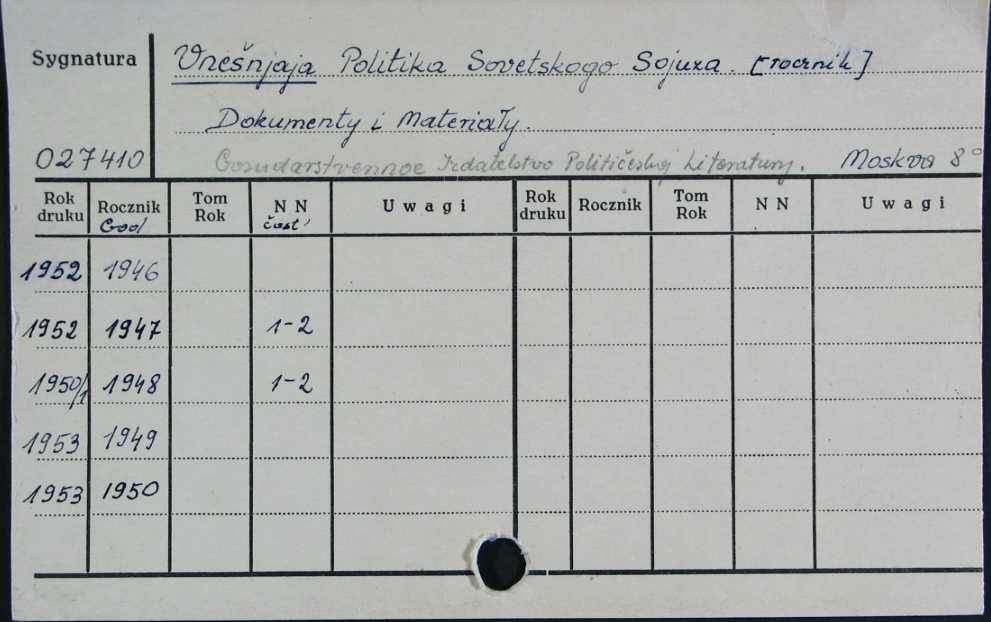 Sygnatura Vnešnjaja Politika Sovetskogo Sojuza. [rocznik]
Dokumenty i Materiały.
027410 Gosudarstvennoe Izdatelstvo Političeskoj Literatury. Moskva 8°
Rok druku Rocznik God Tom Rok N N čast' Uwagi Rok druku Rocznik Tom Rok N N Uwagi
1952 1946
1952 1947 1-2
1950/1 1948 1-2
1953 1949
1953 1950